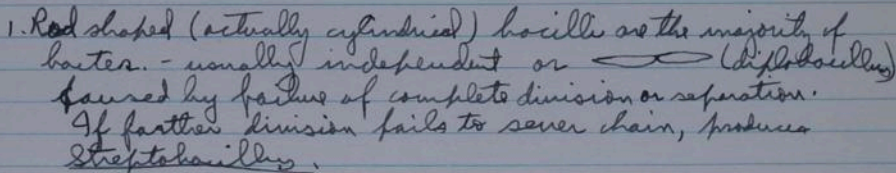 1. Rod shaped (actually cylindrical) bacilli are the majority of
bacter. - usually independent or (diplobacillus)
caused by failure of complete division or seperation.
If farther division fails to sever chain, produces
Streptobacillus.